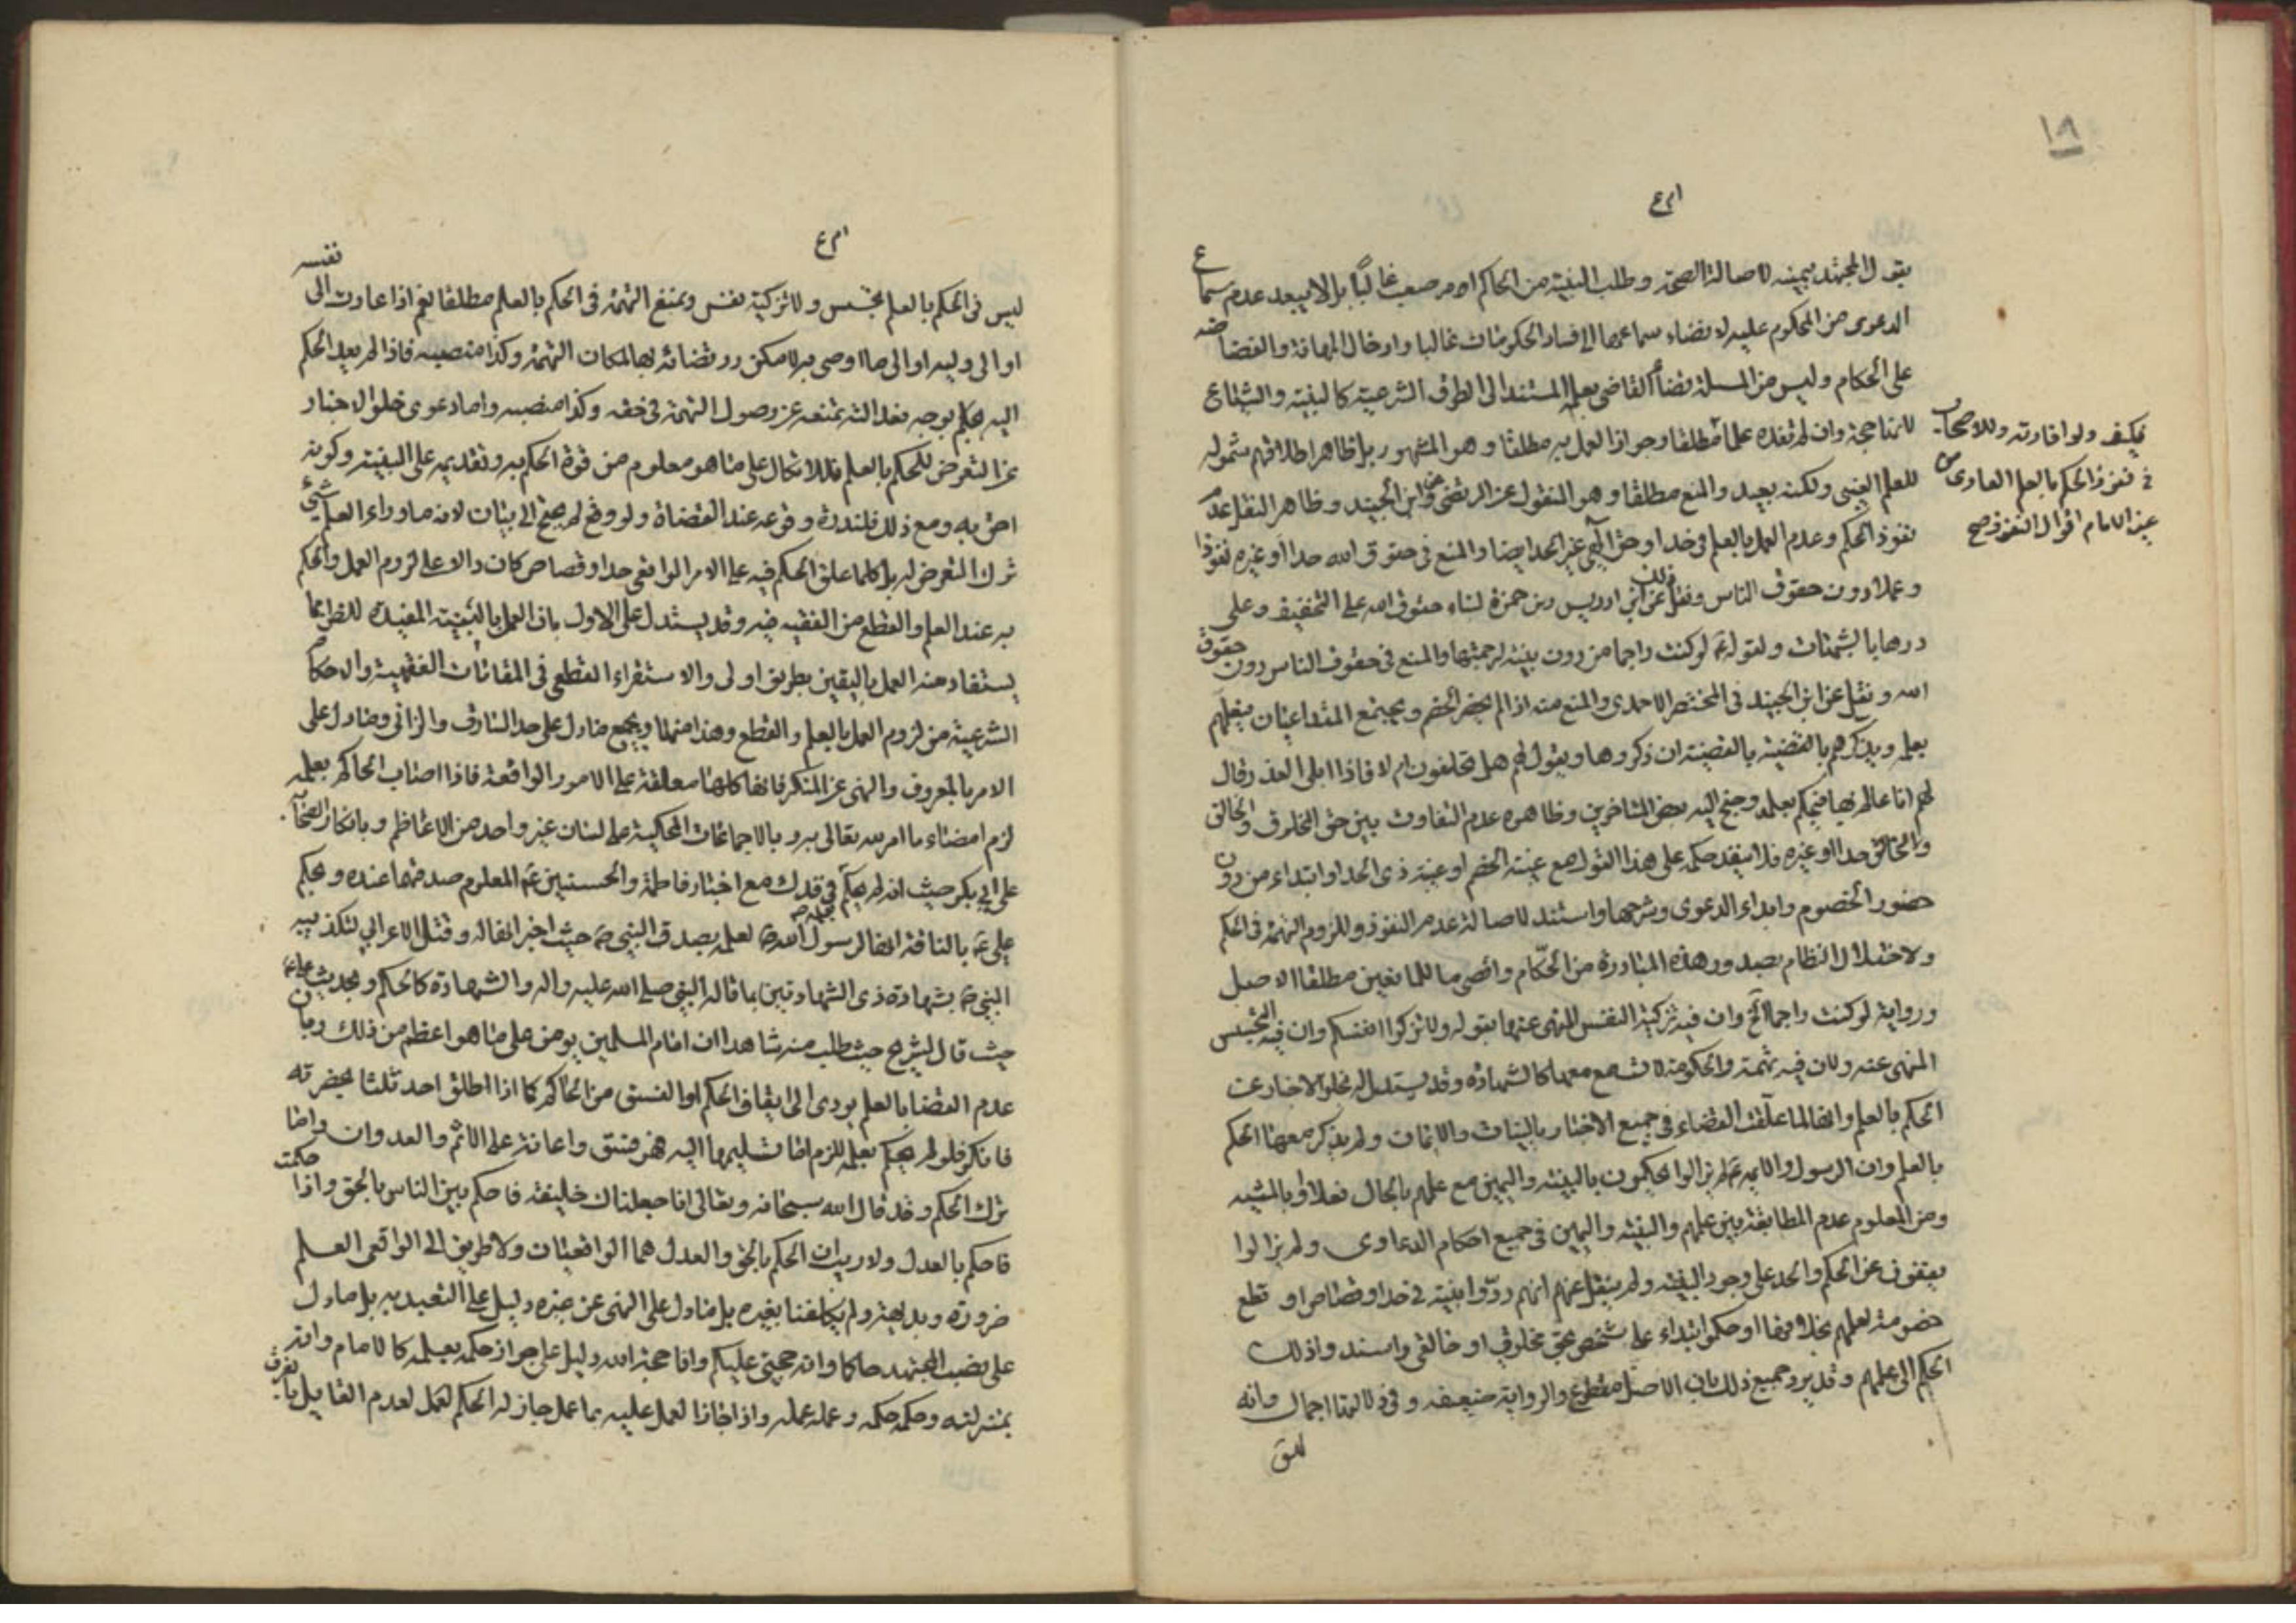 ١٨
يقول المجتهد بيمينه لاصالة الصحة وطلب البينة من الحاكم امر صعب غالباً بل لا يبعد عدم سماع
الدعوى من المحكوم عليه لاقضاء سماعها الى فساد الحكومات غالبا وادخال المهانة والغضاضه
على الحكام وليس من المسئلة قضاء القاضي بعلمه المستند الى الطرق الشرعية كالبينة والشياع
لانها حجة وان لم تفده علما مطلقا وجواز العمل به مطلقا وهو المشهور بل ظاهر اطلاقهم شموله
فيكفى ولو افادته وللاصحاب
في نفوذ الحكم بالعلم العادى من
غير الامام اقوال النفوذ صح
للعلم الغيبى ولكنه بعيد والمنع مطلقا وهو المنقول عن المرتضى عن ابن الجنيد وظاهر النقل عدم
نفوذ الحكم وعدم العمل بالعلم في حد او حق الهى غير الحد ايضا والمنع في حقوق الله حدا او غيره نفوذا
وعملا دون حقوق الناس ونقل ذلك عن ابن ادريس وبن حمزة لبناء حقوق الله على التخفيف وعلى
درءها بالشبهات ولقوله ع لو كنت راجما من دون بينة لرجمتها والمنع في حقوق الناس دون حقوق
الله ونقل عن ابن الجنيد في المختصر الاحمدى والمنع منه اذا لم يحضر الخصم ويجتمع المتداعيان فيعلمهم
بعلمه ويذكرهم بالقضية بالقضية ان ذكروها ويقول لهم هل تحلفون ام لا فاذا ابلى العذر وقال
لهم انا عالم بها فيحكم بعلمه وجنح اليه بعض المتاخرين وظاهره عدم التفاوت بين حق المخلوق والخالق
والخالق حدا او غيره فلا ينفذ حكمه على هذا القول مع غيبة الخصم او غيبة ذى الحد او ابتداء من دون
حضور الخصوم وابداء الدعوى وشرحها واستند لاصالة عدم النفوذ وللزوم التهمة في الحكم
ولاختلال النظام بصدور هذه المبادرة من الحكّام واقصى ما للمانعين مطلقا الاصل
ورواية لو كنت راجما الخ وان فيه تزكية النفس المنهى عنها بقوله ولا تزكوا انفسكم وان فيه التجسس
المنهى عنه ولان فيه تهمة والحكومة لا تسمع معها كالشهادة وقد يستدل له بخلو الاخبار عن
الحكم بالعلم وانها لما علّقت القضاء في جميع الاخبار بالبينات والاثبات ولم يذكر معها الحكم
بالعلم وان الرسول والائمة ع لم يزالوا يحكمون بالبينة واليمين مع علمهم بالحال فعلا او بالمشيه
ومن المعلوم عدم المطابقة بين علمهم والبينة واليمين في جميع احكام الدعاوى ولم يزالوا
يعتقون عن الحكم والحد على وجود البينة ولم ينقل عنهم انهم ردّوا بينة في حد او قصاص او قطع
خصومة لعلمهم بخلافها او حكموا ابتداء على شخص بحق مخلوق او خالقى واسندوا ذلك
الحكم الى علمهم وقد يرد جميع ذلك بان الاصل مقطوع والرواية ضعيفه وفي دلالتها اجمال وانه
ليس في الحكم بالعلم تجسس ولا تزكية نفس وتمنع التهمة في الحكم بالعلم مطلقا نعم اذا عادت الى نفسه
او الى وليه او الى ما اوصى به لامكن رد قضائه بها لمكان التهمة وكذا منصبه فاذا لم يعد الحكم
اليه بحكم بوجه فعدالته تمنعه عن وصول التهمة في حقه وكذا منصبه واما دعوى خلو الاخبار
عن التعرض للحكم بالعلم فللاتكال على ما هو معلوم من قوة الحكم به وتقديمه على البينة وكونه
احق به ومع ذلك فلندرة وقوعه عند القضاة ولو وقع لم يحتج الى بيان لانه ما وراء العلم شئ
ترك التعرض له بل كلما علق الحكم فيه على الامر الواقعى حد او قصاص كان دالا على لزوم العمل والحكم
به عند العلم والقطع من الفقيه فيه وقد يستدل على الاول بان العمل بالبينة المفيدة للظن انما
يستفاد منه العمل باليقين بطريق اولى والاستقراء القطعى في المقامات الفقهية والاحكام
الشرعية من لزوم العمل بالعلم والقطع وهذا منها ويجمع ما دل على حد السارق والزانى وما دل على
الامر بالمعروف والنهى عن المنكر فانها كلها معلقة على الامور الواقعة فاذا اصاب الحاكم بعلمه
لزم امضاء ما امر الله تعالى به وبالاجماعات المحكية على لسان غير واحد من الاعاظم وبانكار الصحابة
على ابي بكر حيث انه لم يحكم في فدك مع اخبار فاطمة والحسنين ع المعلوم صدقها عنده وبحكم
على ع بالناقة انها لرسول الله ص لعلمه بصدق النبي ص حيث اخبر انها له وقتل الاعرابي لتكذيبه
النبي ص بشهادة ذى الشهادتين بما قاله النبي صلى الله عليه واله والشهادة كالحكم وبحديث على ع
حيث قال لشريح حيث طلب منه شاهدا ان امام المسلمين يؤمن على ما هو اعظم من ذلك وبان
عدم القضا بالعلم يودى الى ايقاف الحكم او الفسق من الحاكم كما اذا اطلق احد ثلثا بحضرته
فانكر فلو لم يحكم بعلمه للزم اما تسليمها اليه فهو فسق واعانة على الاثم والعدوان واما
ترك الحكم وقد قال الله سبحانه وتعالى انا جعلناك خليفة فاحكم بين الناس بالحق واذا حكمت
فاحكم بالعدل ولا ريب ان الحكم بالحق والعدل هما الواقعيان ولا طريق الى الواقعى العلم
ضرورة وبداهة ولم يكلفنا بغيره بل ما دل على النهى عن غيره دليل على التعبد به بل ما دل
على نصب المجتهد حاكما وانه حجتى عليكم وانا حجة الله دليل على جواز حكمه بعلمه كالامام وانه
بمنزلته وحكمه حكمه وعمله عمله واذا جاز العمل عليه بما عمل جاز له الحكم لعمل لعدم القايل بالفرق